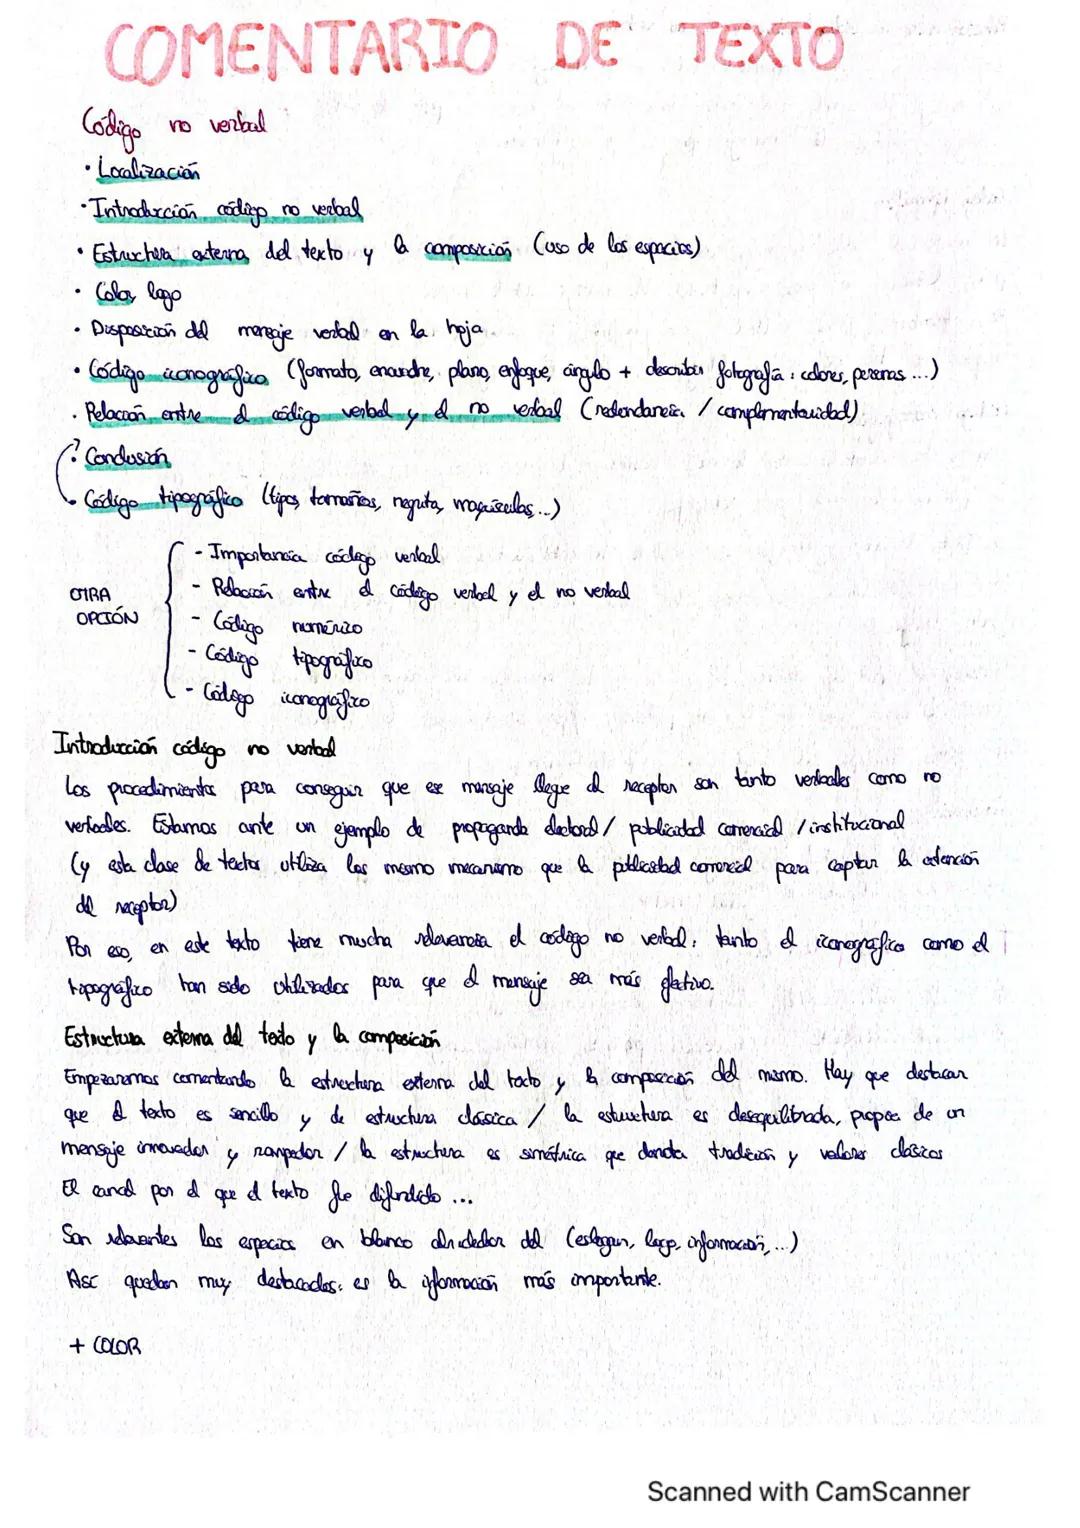 COMENTARIO DE TEXTO
Código no verbal
· Localización
· Introducción código no verbal
· Estructura externa del texto y la composición (uso de los espacios)
· Color, logo
· Disposición del mensaje verbal en la hoja
· Código iconográfico (formato, encuadre, plano, enfoque, ángulo + describir fotografía: colores, personas ...)
· Relación entre el código verbal y el no verbal (redundancia / complementariedad)
?
· Conclusión
· Código tipográfico (tipos, tamaños, negrita, mayúsculas...)
OTRA OPCIÓN
- Importancia código verbal
- Relación entre el código verbal y el no verbal
- Código numérico
- Código tipográfico
- Código iconográfico
Introducción código no verbal
Los procedimientos para conseguir que ese mensaje llegue al receptor son tanto verbales como no
verbales. Estamos ante un ejemplo de propaganda electoral / publicidad comercial / institucional
(y esta clase de textos utiliza los mismo mecanismo que la publicidad comercial para captar la atención
del receptor)
Por eso, en este texto tiene mucha relevancia el código no verbal: tanto el iconográfico como el
tipográfico han sido utilizados para que el mensaje sea más efectivo.
Estructura externa del texto y la composición
Empezaremos comentando la estructura externa del texto y la composición del mismo. Hay que destacar
que el texto es sencillo y de estructura clásica / la estructura es desequilibrada, propia de un
mensaje innovador y rompedor / la estructura es simétrica que denota tradición y valores clásicos
El canal por el que el texto fue difundido ...
Son relevantes los espacios en blanco alrededor del (eslogan, logo, información, ...)
Así quedan muy destacados: es la información más importante.
+ COLOR
Scanned with CamScanner